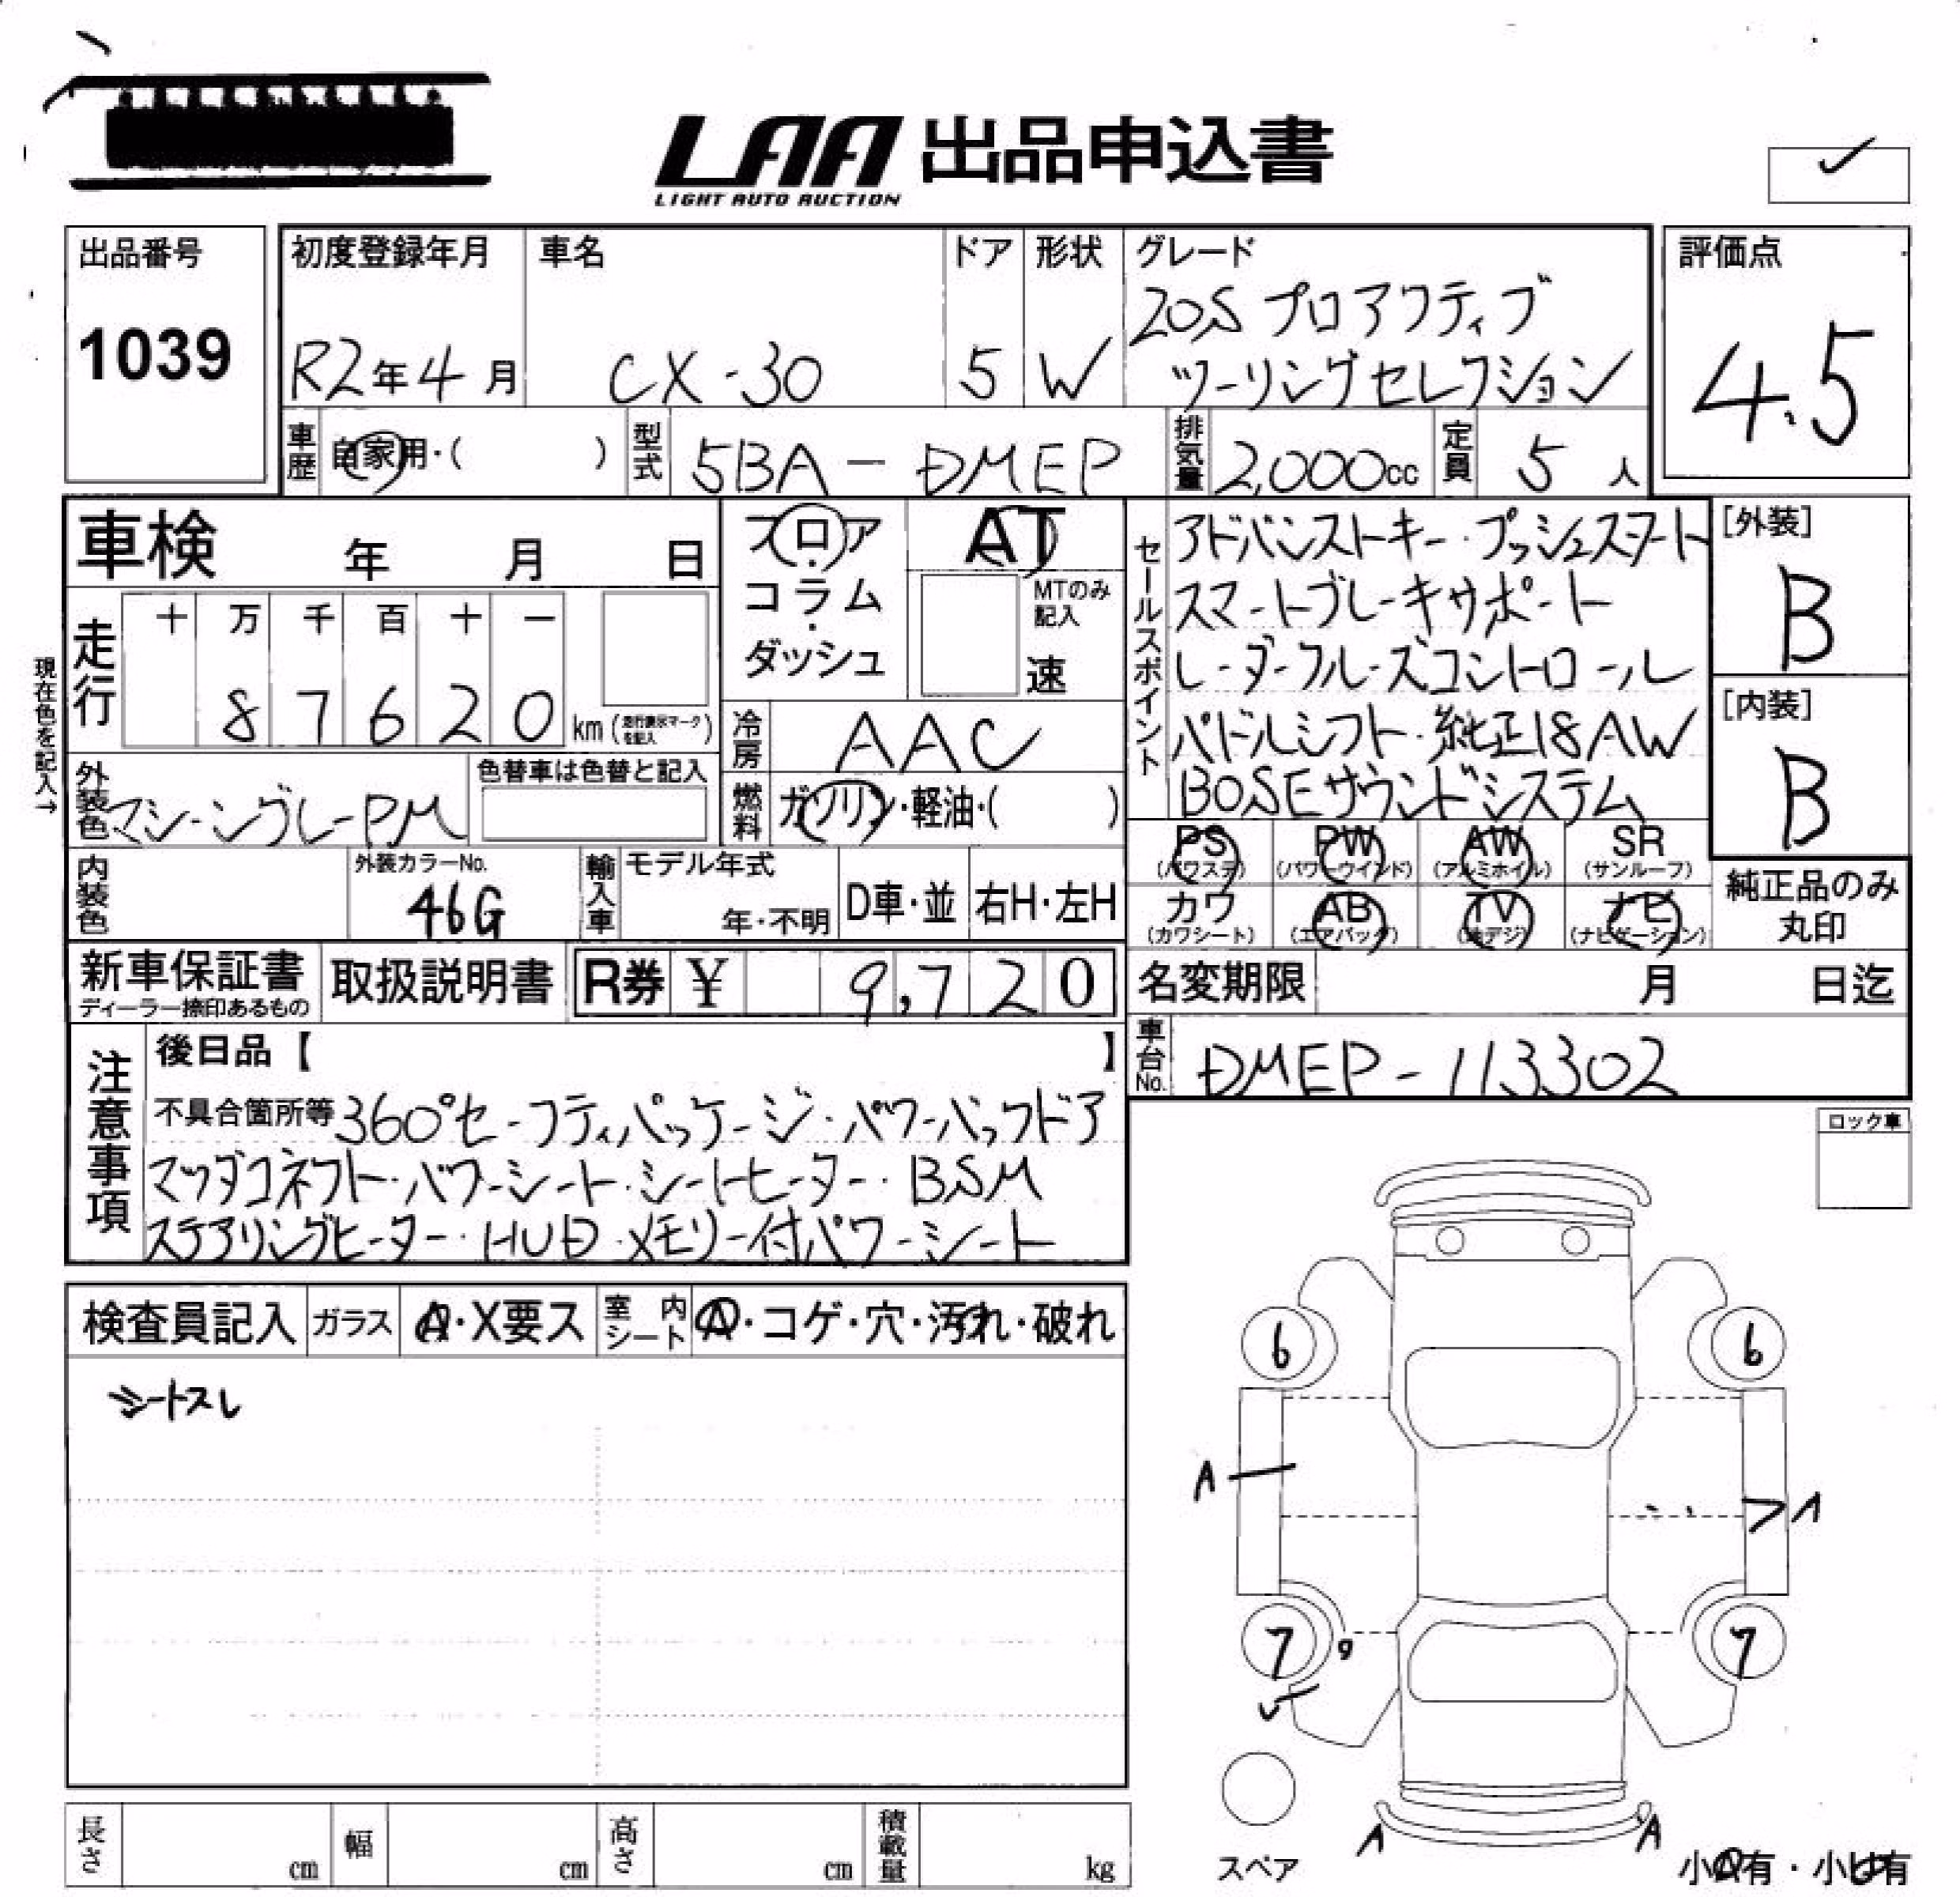 LAA 出品申込書
LIGHT AUTO AUCTION
出品番号
1039
初度登録年月
R2年4月
車名
CX-30
ドア
5
形状
W
グレード
20S プロアクティブ
ツーリングセレクション
評価点
4.5
車歴
自家用・( )
型式
5BA-DMEP
排気量
2,000cc
定員
5人
車検 年 月 日
フロア
・
コラム
・
ダッシュ
AT
MTのみ
記入
速
セールスポイント
アドバンストキー・プッシュスタート
スマートブレーキサポート
レーダークルーズコントロール
パドルシフト・純正18AW
BOSEサウンドシステム
[外装]
B
[内装]
B
現在色を記入→
走行
十 万 千 百 十 一
8 7 6 2 0 km (走行表示マークを記入)
冷房
AAC
外装色
マシーングレーPM
色替車は色替と記入
燃料
ガソリン・軽油・( )
内装色
外装カラーNo.
46G
輸入車
モデル年式
年・不明
D車・並
右H・左H
PS (パワステ)
PW (パワーウインド)
AW (アルミホイル)
SR (サンルーフ)
カワ (カワシート)
AB (エアバッグ)
TV (地デジ)
ナビ (ナビゲーション)
純正品のみ
丸印
新車保証書
ディーラー捺印あるもの
取扱説明書
R券 ¥ 9,720
名変期限 月 日迄
車台No.
DMEP-113302
注意事項
後日品【 】
不具合箇所等 360°セーフティパッケージ・パワーバックドア
マツダコネクト・パワーシート・シートヒーター・BSM
ステアリングヒーター・HUD・メモリー付パワーシート
ロック車
検査員記入
ガラス
A・X要ス
室内シート
A・コゲ・穴・汚れ・破れ
シートスレ
6 6
A
A
7 7
スペア
A A
小A有・小U有
長さ cm
幅 cm
高さ cm
積載量 kg